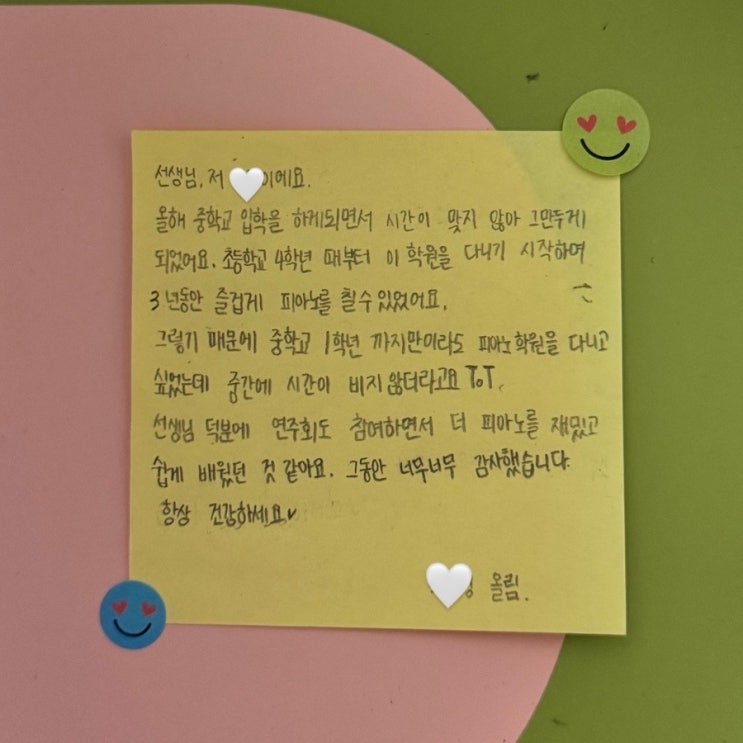 선생님, 저 이에요.
올해 중학교 입학을 하게되면서 시간이 맞지 않아 그만두게
되었어요. 초등학교 4학년 때부터 이 학원을 다니기 시작하며
3년동안 즐겁게 피아노를 칠수있었어요.
그렇기 때문에 중학교 1학년 까지만이라도 피아노학원을 다니고
싶었는데 중간에 시간이 비지 않더라고요 ToT.
선생님 덕분에 연주회도 참여하면서 더 피아노를 재밌고
쉽게 배웠던 것 같아요. 그동안 너무너무 감사했습니다.
항상 건강하세요♥
올림.